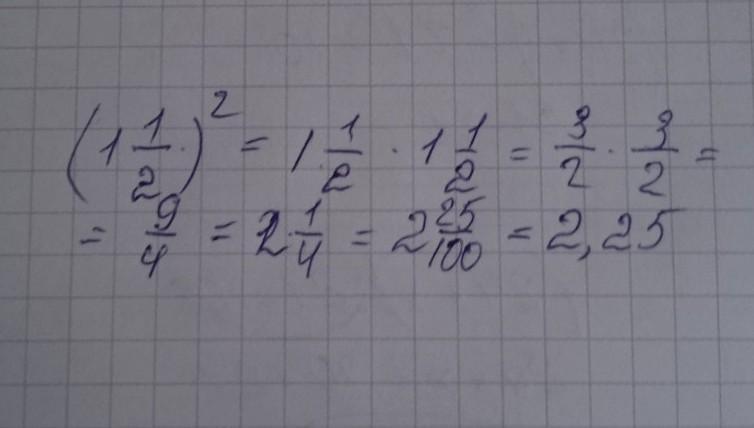 (1 1/2)² = 1 1/2 · 1 1/2 = 3/2 · 3/2 =
= 9/4 = 2 1/4 = 2 25/100 = 2,25